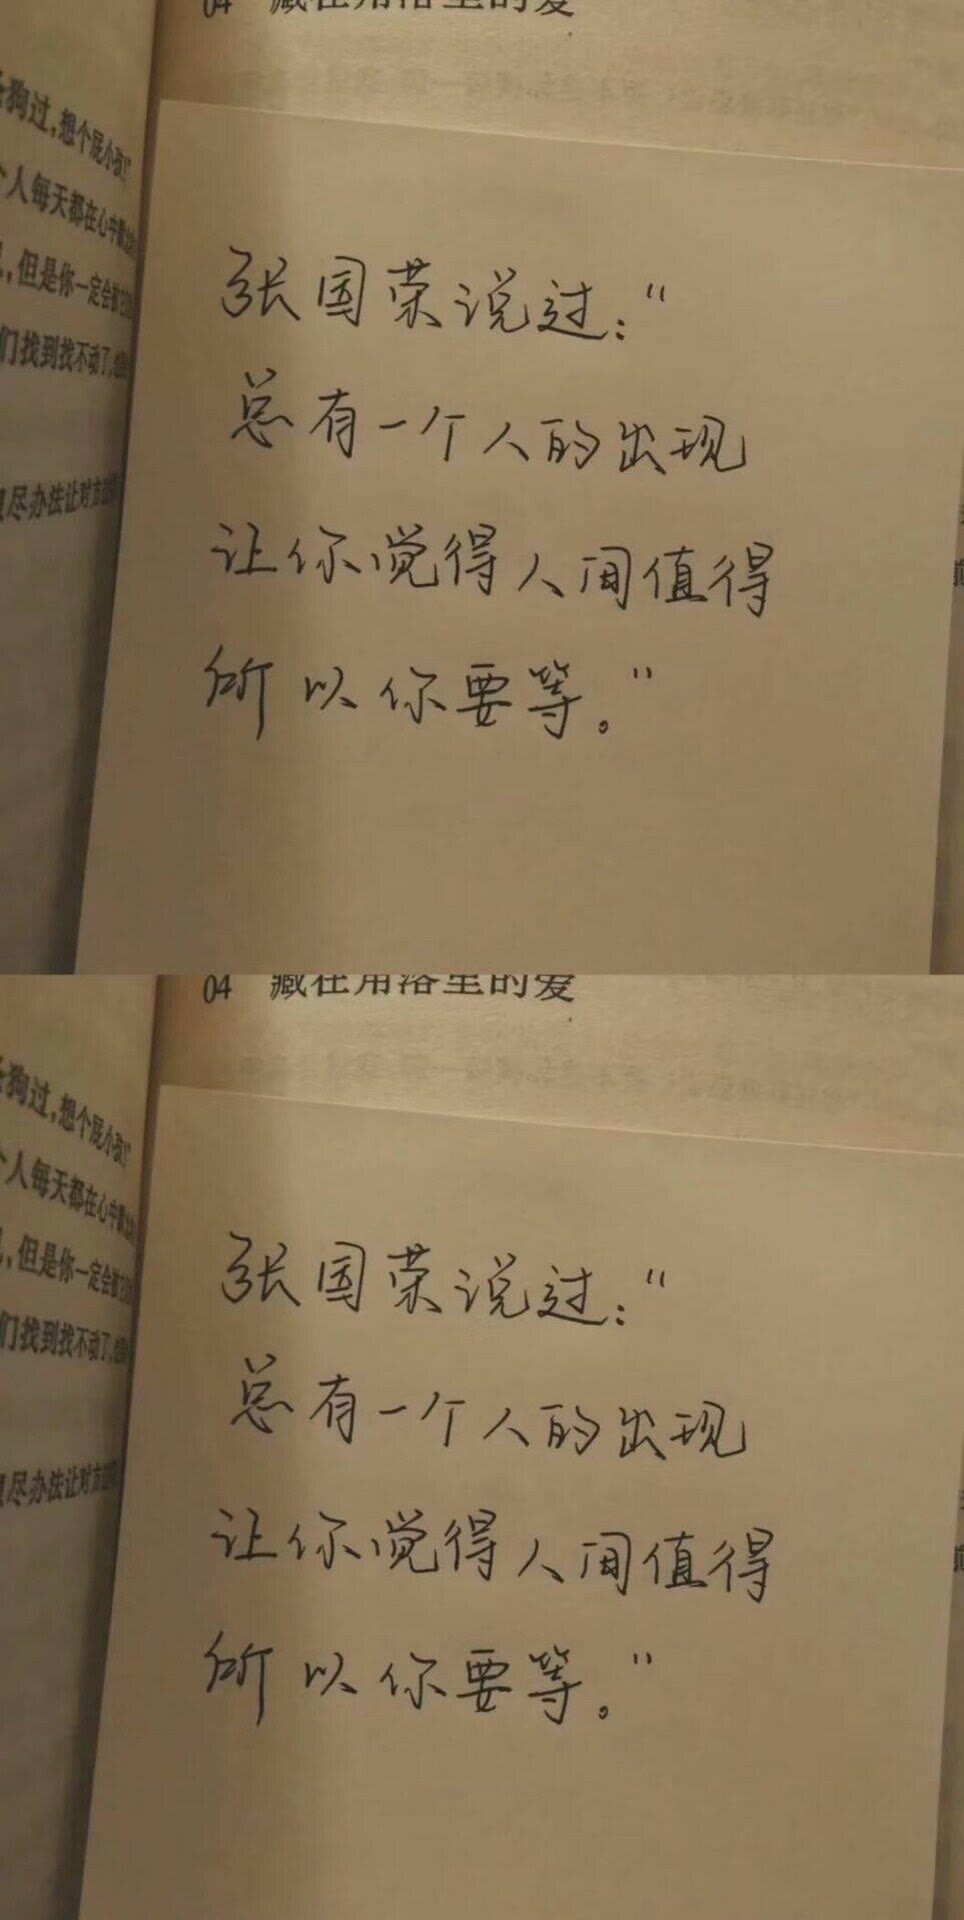 04 藏在角落里的爱
狗过,想个屁小孩!"
个人每天都在心中
,但是你一定会被它
们找到找不动了,
尽办法让对方
张国荣说过:"
总有一个人的出现
让你觉得人间值得
所以你要等。"
04 藏在角落里的爱
狗过,想个屁小孩!"
个人每天都在心中
,但是你一定会被它
们找到找不动了,
尽办法让对方
张国荣说过:"
总有一个人的出现
让你觉得人间值得
所以你要等。"